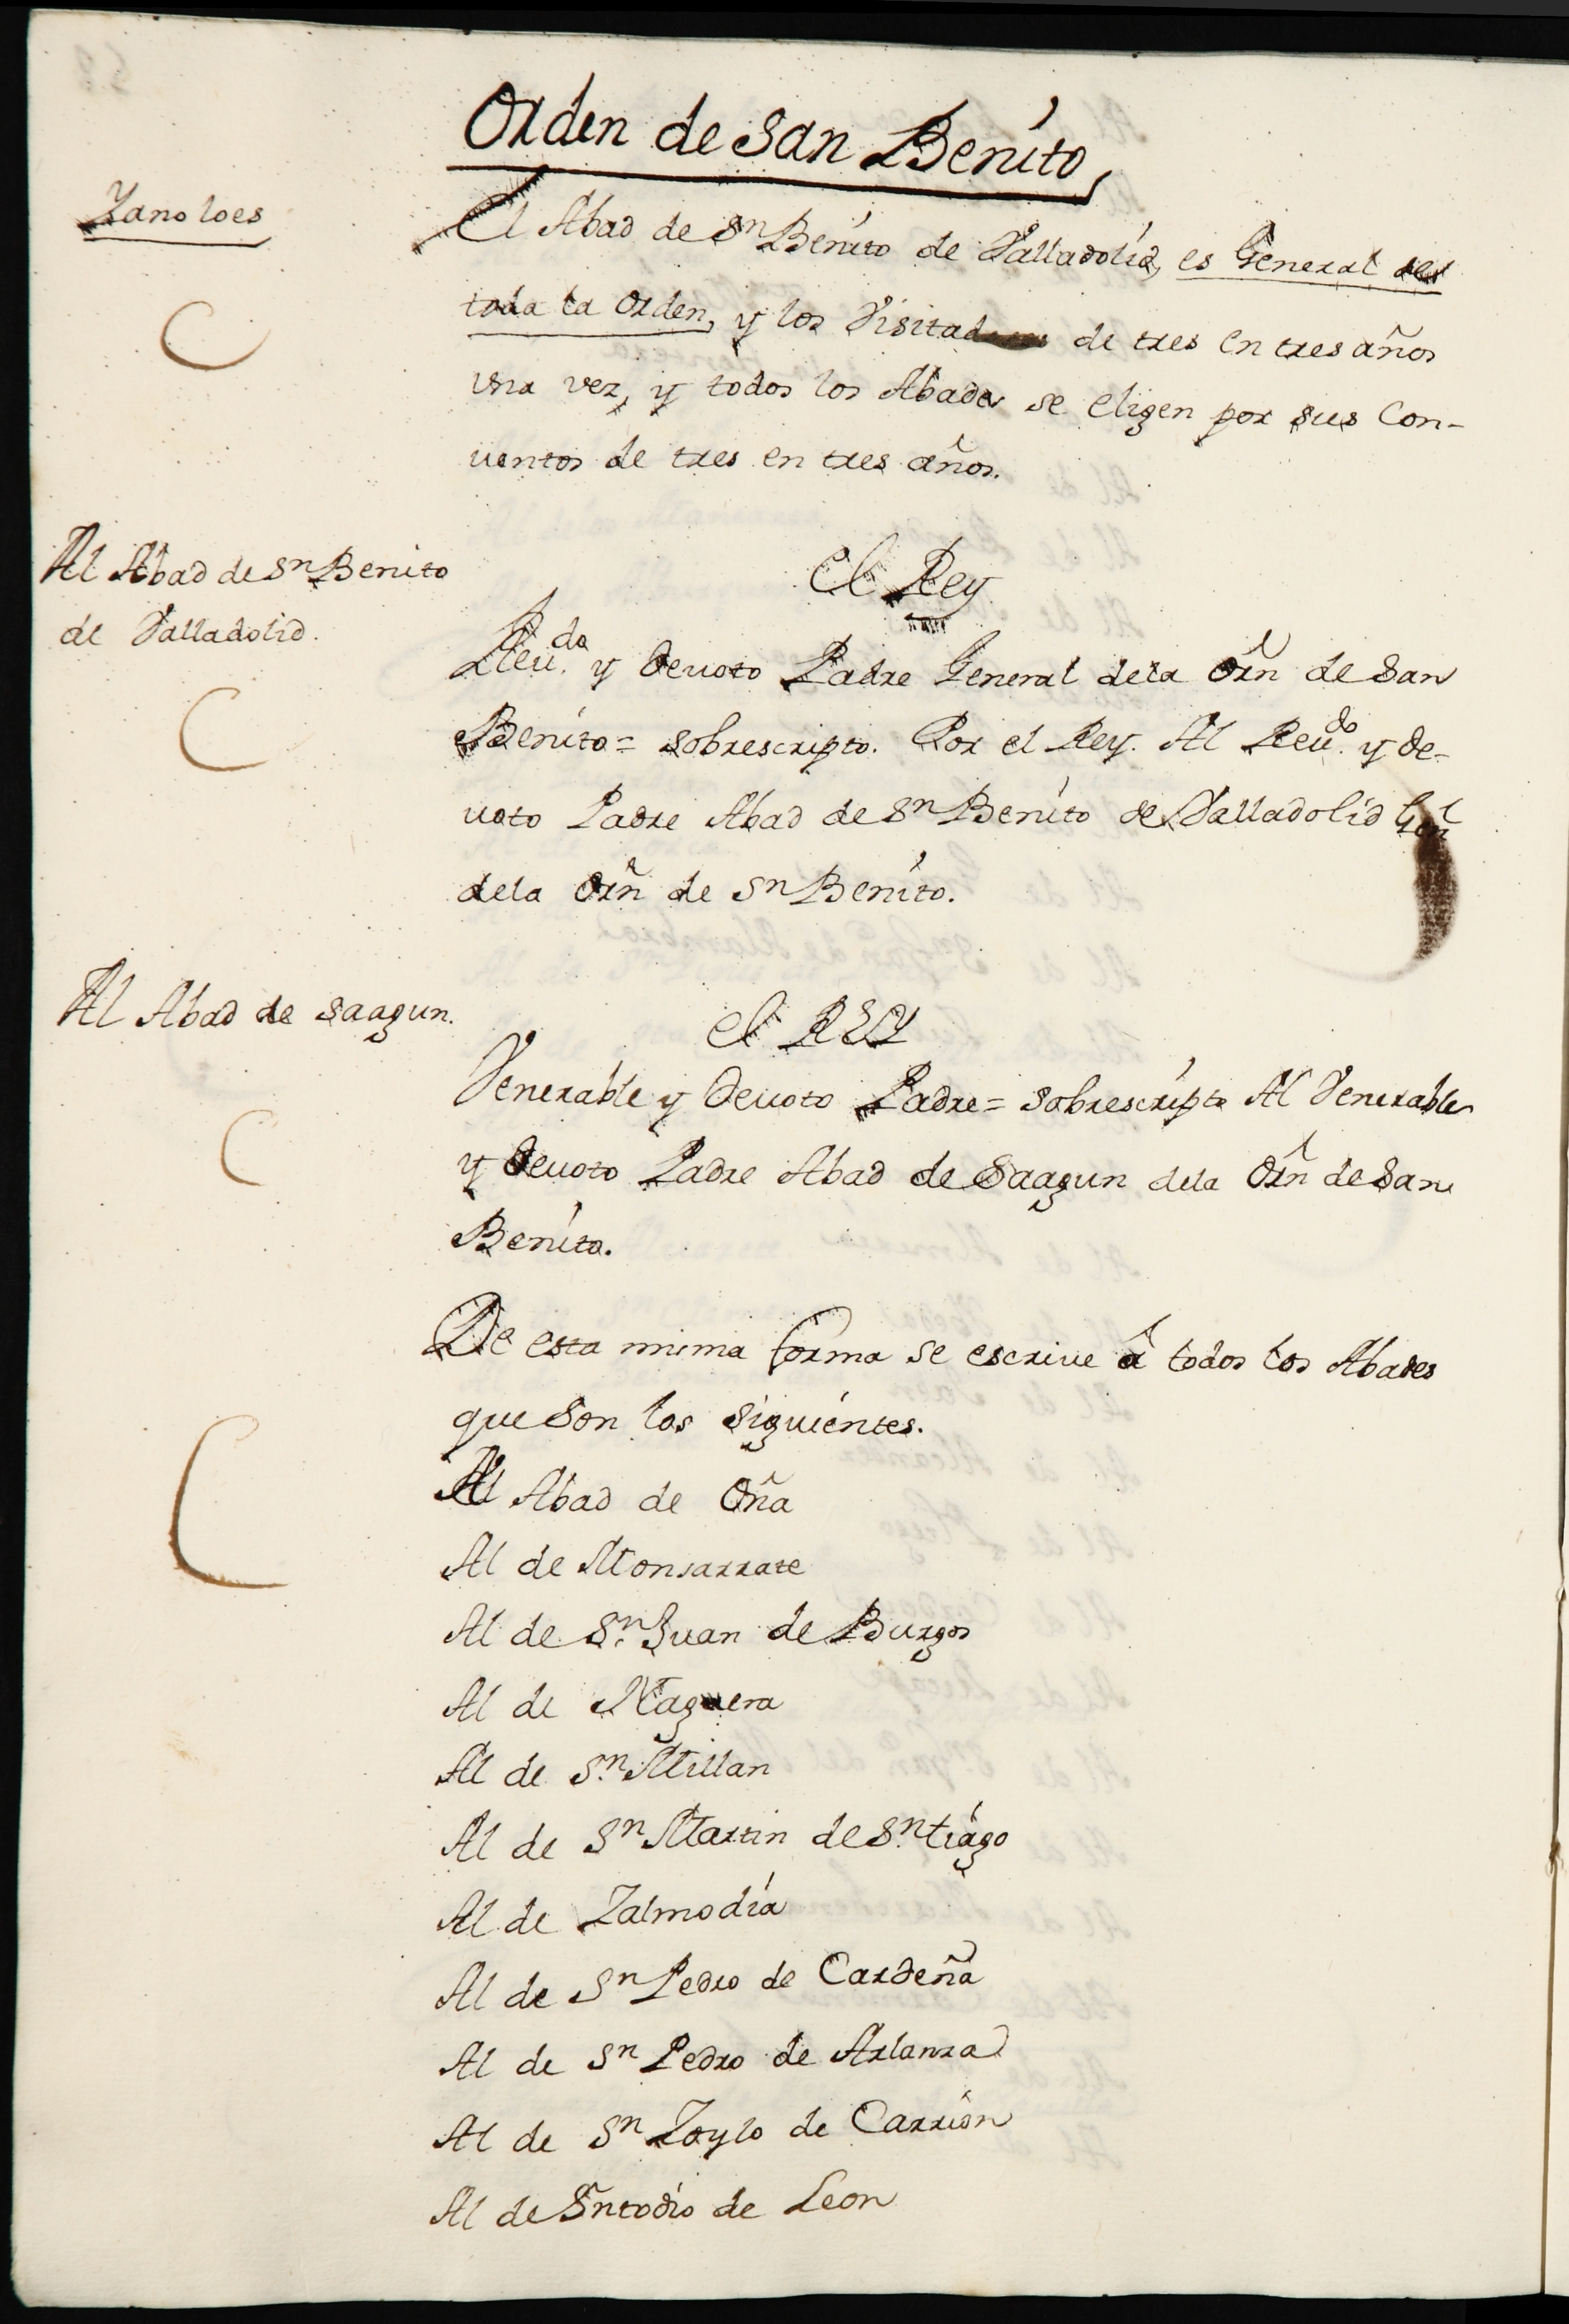 Orden de San Benito
Yano loes
El Abad de Sn Benito de Valladolid, es General de
toda la Orden, y los Visitadores de tres en tres años
una vez, y todos los Abades se eligen por sus Con-
uentos de tres en tres años.
Al Abad de Sn Benito
de Valladolid.
El Rey
Reu.do y Deuoto Padre General dela Orñ de San
Benito = sobrescripto. Por el Rey. Al Reu.do y De-
uoto Padre Abad de Sn Benito de Valladolid Geñl
dela Orñ de Sn Benito.
Al Abad de Saagun.
El REY
Venerable y Deuoto Padre = sobrescripto Al Venerable
y Deuoto Padre Abad de Saagun dela Orñ de San
Benito.
De esta mima forma se escriue â todos los Abades
que Son los Siguientes.
Al Abad de Oña
Al de Monsarrate
Al de Sn. Juan de Burgos
Al de Naguera
Al de Sn. Millan
Al de Sn Martin de Sn.tiago
Al de Zalmodia
Al de Sn Pedro de Cardeña
Al de Sn Pedro de Arlanza
Al de Sn Zoylo de Carrion
Al de Sntodio de Leon